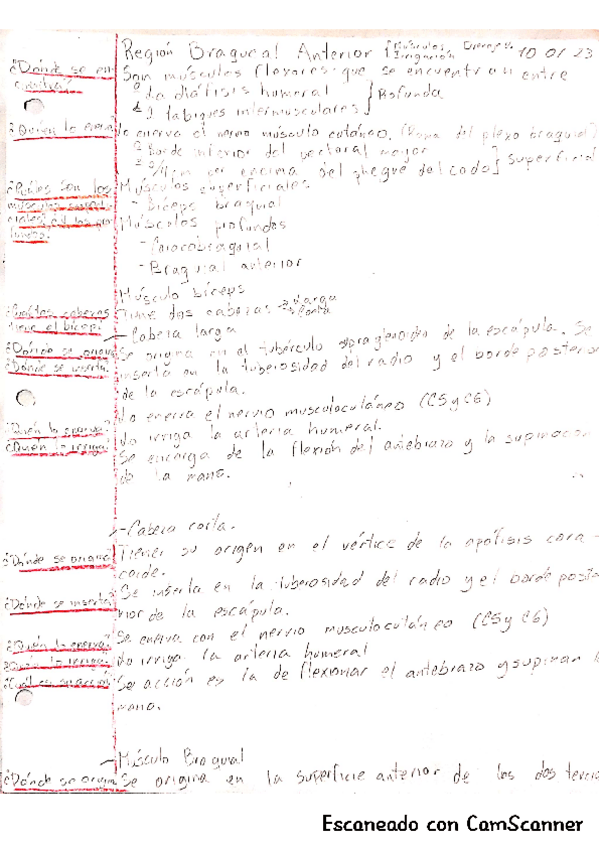 Región Braquial Anterior [Músculos Irrigación 10 01 23
¿Dónde se en- Son músculos flexores que se encuentran entre
cuentra? ° La diáfisis humeral
° 2 tabiques intermusculares } Profunda
¿Quién lo enerva? Lo enerva el nervio músculo cutáneo. (Rama del plexo braquial)
° Borde inferior del pectoral mayor
por encima del pliegue del codo] Superficial
¿Cuáles son los Músculos superficiales
músculos - Bíceps braquial
y los pro- Músculos profundos
fundos? - Coracobraquial
- Braquial anterior
Músculo bíceps
¿Cuántas cabezas Tiene dos cabezas → Larga → Corta
tiene el bíceps? - Cabeza larga
¿Dónde se origina? Se origina en el tubérculo supraglenoideo de la escápula. Se
¿Dónde se inserta? inserta en la tuberosidad del radio y el borde posterior
de la escápula.
¿Quién lo enerva? Lo enerva el nervio musculocutáneo (C5 y C6)
¿Quién lo irriga? Lo irriga la arteria humeral.
Se encarga de la flexión del antebrazo y la supinación
de la mano.
- Cabeza corta.
¿Dónde se origina? Tiener su origen en el vértice de la apófisis cora-
coide.
¿Dónde se inserta? Se inserta en la tuberosidad del radio y el borde poste-
rior de la escápula.
¿Quién lo enerva? Se enerva con el nervio musculocutáneo (C5 y C6)
¿Quién lo irriga? Lo irriga la arteria humeral
¿Cuál es su acción? Se acción es la de flexionar el antebrazo y supinan la
mano.
- Músculo Braquial
¿Dónde se origina? Se origina en la superficie anterior de los dos tercio
Escaneado con CamScanner